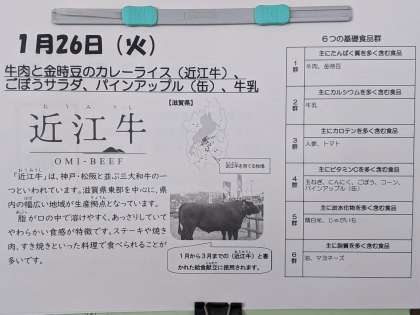 1月26日（火）
牛肉と金時豆のカレーライス（近江牛）、
ごぼうサラダ、パインアップル（缶）、牛乳
おうみうし
近江牛
OMI-BEEF
「近江牛」は、神戸・松阪と並ぶ三大和牛の一
つといわれています。滋賀県東部を中心に、県
内の幅広い地域が生産拠点となっています。
脂が口の中で溶けやすく、あっさりしていて
やわらかい食感が特徴です。ステーキや焼き
肉、すき焼きといった料理で食べられることが
多いです。
【滋賀県】
1月から3月までの（近江牛）と書
かれた給食献立に使用されます。
6つの基礎食品群
1群
主にたんぱく質を多く含む食品
牛肉、金時豆
2群
主にカルシウムを多く含む食品
牛乳
3群
主にカロテンを多く含む食品
人参、トマト
4群
主にビタミンCを多く含む食品
玉ねぎ、にんにく、ごぼう、コーン、
パインアップル（缶）
5群
主に炭水化物を多く含む食品
精白米、じゃがいも
6群
主に脂質を多く含む食品
油、マヨネーズ